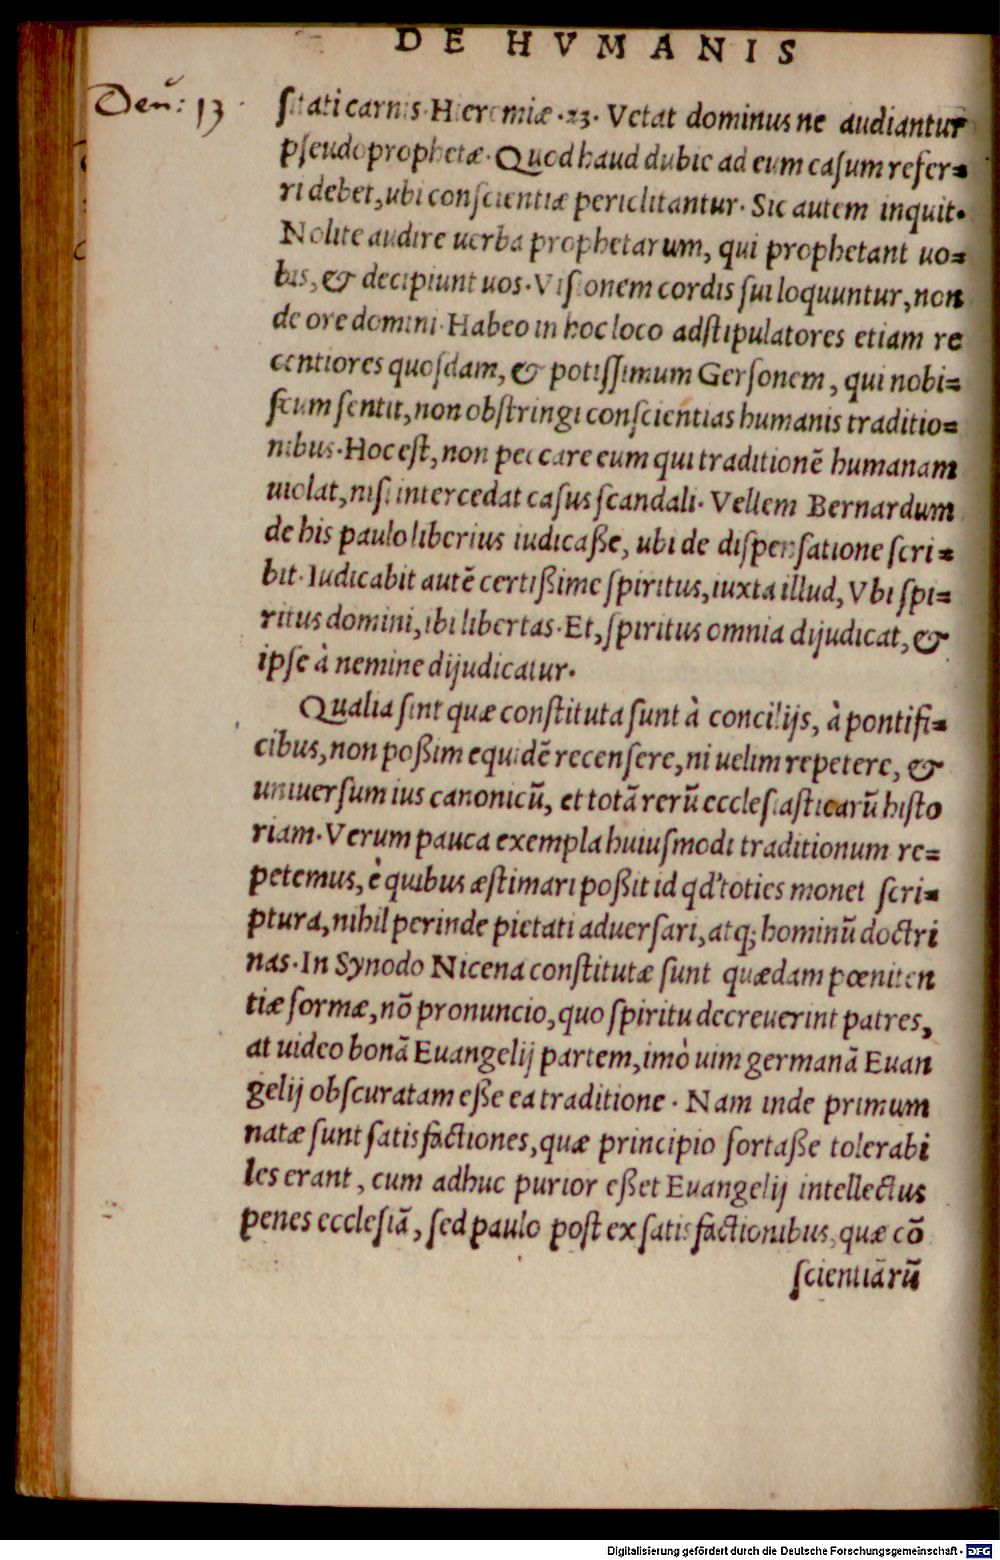 DE HVMANIS
Deu: 13
sitati carnis. Hieremiæ .23. Vetat dominus ne audiantur
pseudoprophetæ. Quod haud dubie ad eum casum refer=
ri debet, ubi conscientiæ periclitantur. Sic autem inquit.
Nolite audire uerba prophetarum, qui prophetant uo=
bis, & decipiunt uos. Visionem cordis sui loquuntur, non
de ore domini. Habeo in hoc loco adstipulatores etiam re
centiores quosdam, & potissimum Gersonem, qui nobi=
scum sentit, non obstringi conscientias humanis traditio=
nibus. Hoc est, non peccare eum qui traditionē humanam
uiolat, nisi intercedat casus scandali. Vellem Bernardum
de his paulo liberius iudicaße, ubi de dispensatione scri=
bit. Iudicabit autē certißime spiritus, iuxta illud, Vbi spi=
ritus domini, ibi libertas. Et, spiritus omnia dijudicat, &
ipse à nemine dijudicatur.
Qualia sint quæ constituta sunt à concilijs, à pontifi=
cibus, non poßim equidē recensere, ni uelim repetere, &
uniuersum ius canonicū, et totā rerū ecclesiasticarū histo
riam. Verum pauca exempla huiusmodi traditionum re=
petemus, è quibus æstimari poßit id qd' toties monet scri=
ptura, nihil perinde pietati aduersari, atq; hominū doctri
nas. In Synodo Nicena constitutæ sunt quædam pœniten
tiæ formæ, nō pronuncio, quo spiritu decreuerint patres,
at uideo bonā Euangelij partem, imò uim germanā Euan
gelij obscuratam eße ea traditione. Nam inde primum
natæ sunt satisfactiones, quæ principio fortaße tolerabi
les erant, cum adhuc purior eßet Euangelij intellectus
penes ecclesiā, sed paulo post ex satisfactionibus, quæ cō
scientiarū
Digitalisierung gefördert durch die Deutsche Forschungsgemeinschaft - DFG